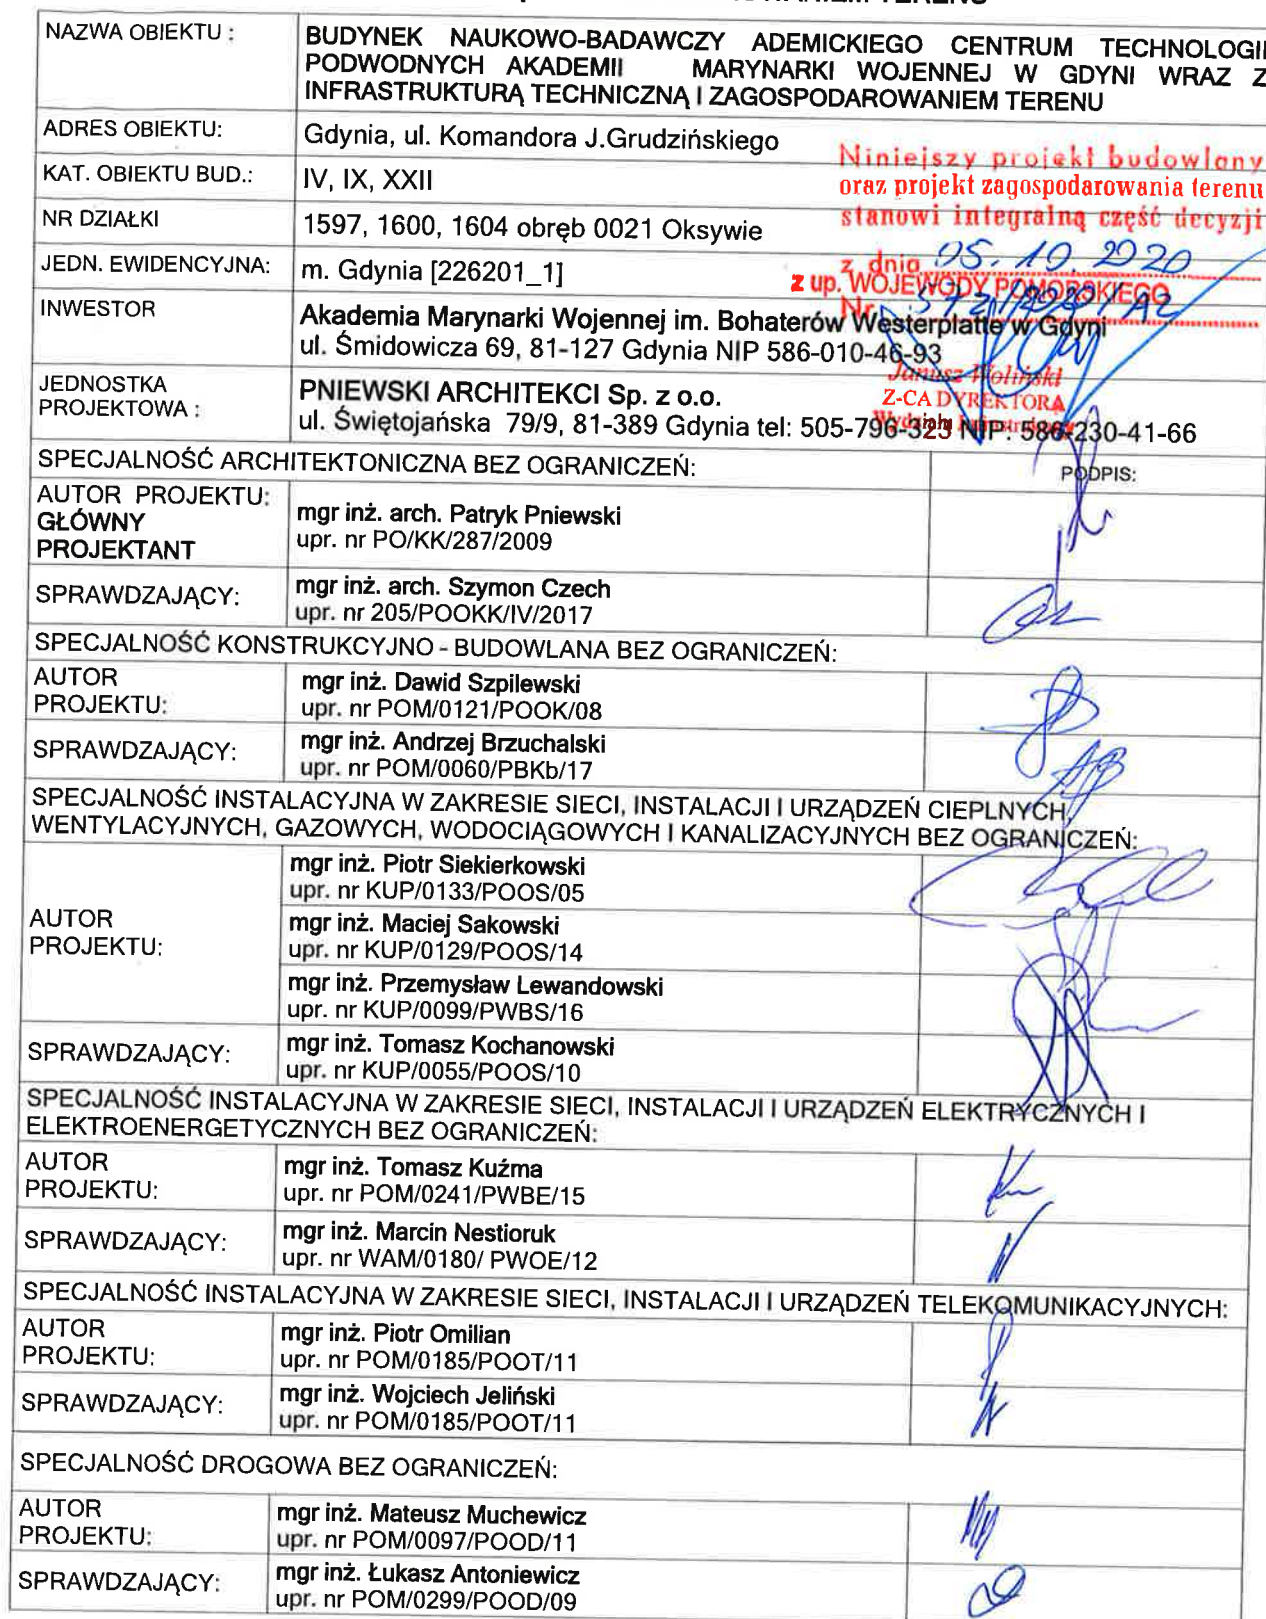 NAZWA OBIEKTU :
BUDYNEK NAUKOWO-BADAWCZY ADEMICKIEGO CENTRUM TECHNOLOGII
PODWODNYCH AKADEMII MARYNARKI WOJENNEJ W GDYNI WRAZ Z
INFRASTRUKTURĄ TECHNICZNĄ I ZAGOSPODAROWANIEM TERENU
ADRES OBIEKTU:
Gdynia, ul. Komandora J.Grudzińskiego
Niniejszy projekt budowlany
oraz projekt zagospodarowania terenu
stanowi integralną część decyzji
z dnia 05.10.2020
Nr
z up. WOJEWODY POMORSKIEGO
Janusz Woliński
Z-CA DYREKTORA
KAT. OBIEKTU BUD.:
IV, IX, XXII
NR DZIAŁKI
1597, 1600, 1604 obręb 0021 Oksywie
JEDN. EWIDENCYJNA:
m. Gdynia [226201_1]
INWESTOR
Akademia Marynarki Wojennej im. Bohaterów Westerplatte w Gdyni
ul. Śmidowicza 69, 81-127 Gdynia NIP 586-010-46-93
JEDNOSTKA
PROJEKTOWA :
PNIEWSKI ARCHITEKCI Sp. z o.o.
ul. Świętojańska 79/9, 81-389 Gdynia tel: 505-796-323 NIP: 586-230-41-66
SPECJALNOŚĆ ARCHITEKTONICZNA BEZ OGRANICZEŃ:
PODPIS:
AUTOR PROJEKTU:
GŁÓWNY
PROJEKTANT
mgr inż. arch. Patryk Pniewski
upr. nr PO/KK/287/2009
SPRAWDZAJĄCY:
mgr inż. arch. Szymon Czech
upr. nr 205/POOKK/IV/2017
SPECJALNOŚĆ KONSTRUKCYJNO - BUDOWLANA BEZ OGRANICZEŃ:
AUTOR
PROJEKTU:
mgr inż. Dawid Szpilewski
upr. nr POM/0121/POOK/08
SPRAWDZAJĄCY:
mgr inż. Andrzej Brzuchalski
upr. nr POM/0060/PBKb/17
SPECJALNOŚĆ INSTALACYJNA W ZAKRESIE SIECI, INSTALACJI I URZĄDZEŃ CIEPLNYCH,
WENTYLACYJNYCH, GAZOWYCH, WODOCIĄGOWYCH I KANALIZACYJNYCH BEZ OGRANICZEŃ:
AUTOR
PROJEKTU:
mgr inż. Piotr Siekierkowski
upr. nr KUP/0133/POOS/05
mgr inż. Maciej Sakowski
upr. nr KUP/0129/POOS/14
mgr inż. Przemysław Lewandowski
upr. nr KUP/0099/PWBS/16
SPRAWDZAJĄCY:
mgr inż. Tomasz Kochanowski
upr. nr KUP/0055/POOS/10
SPECJALNOŚĆ INSTALACYJNA W ZAKRESIE SIECI, INSTALACJI I URZĄDZEŃ ELEKTRYCZNYCH I
ELEKTROENERGETYCZNYCH BEZ OGRANICZEŃ:
AUTOR
PROJEKTU:
mgr inż. Tomasz Kuźma
upr. nr POM/0241/PWBE/15
SPRAWDZAJĄCY:
mgr inż. Marcin Nestioruk
upr. nr WAM/0180/ PWOE/12
SPECJALNOŚĆ INSTALACYJNA W ZAKRESIE SIECI, INSTALACJI I URZĄDZEŃ TELEKOMUNIKACYJNYCH:
AUTOR
PROJEKTU:
mgr inż. Piotr Omilian
upr. nr POM/0185/POOT/11
SPRAWDZAJĄCY:
mgr inż. Wojciech Jeliński
upr. nr POM/0185/POOT/11
SPECJALNOŚĆ DROGOWA BEZ OGRANICZEŃ:
AUTOR
PROJEKTU:
mgr inż. Mateusz Muchewicz
upr. nr POM/0097/POOD/11
SPRAWDZAJĄCY:
mgr inż. Łukasz Antoniewicz
upr. nr POM/0299/POOD/09